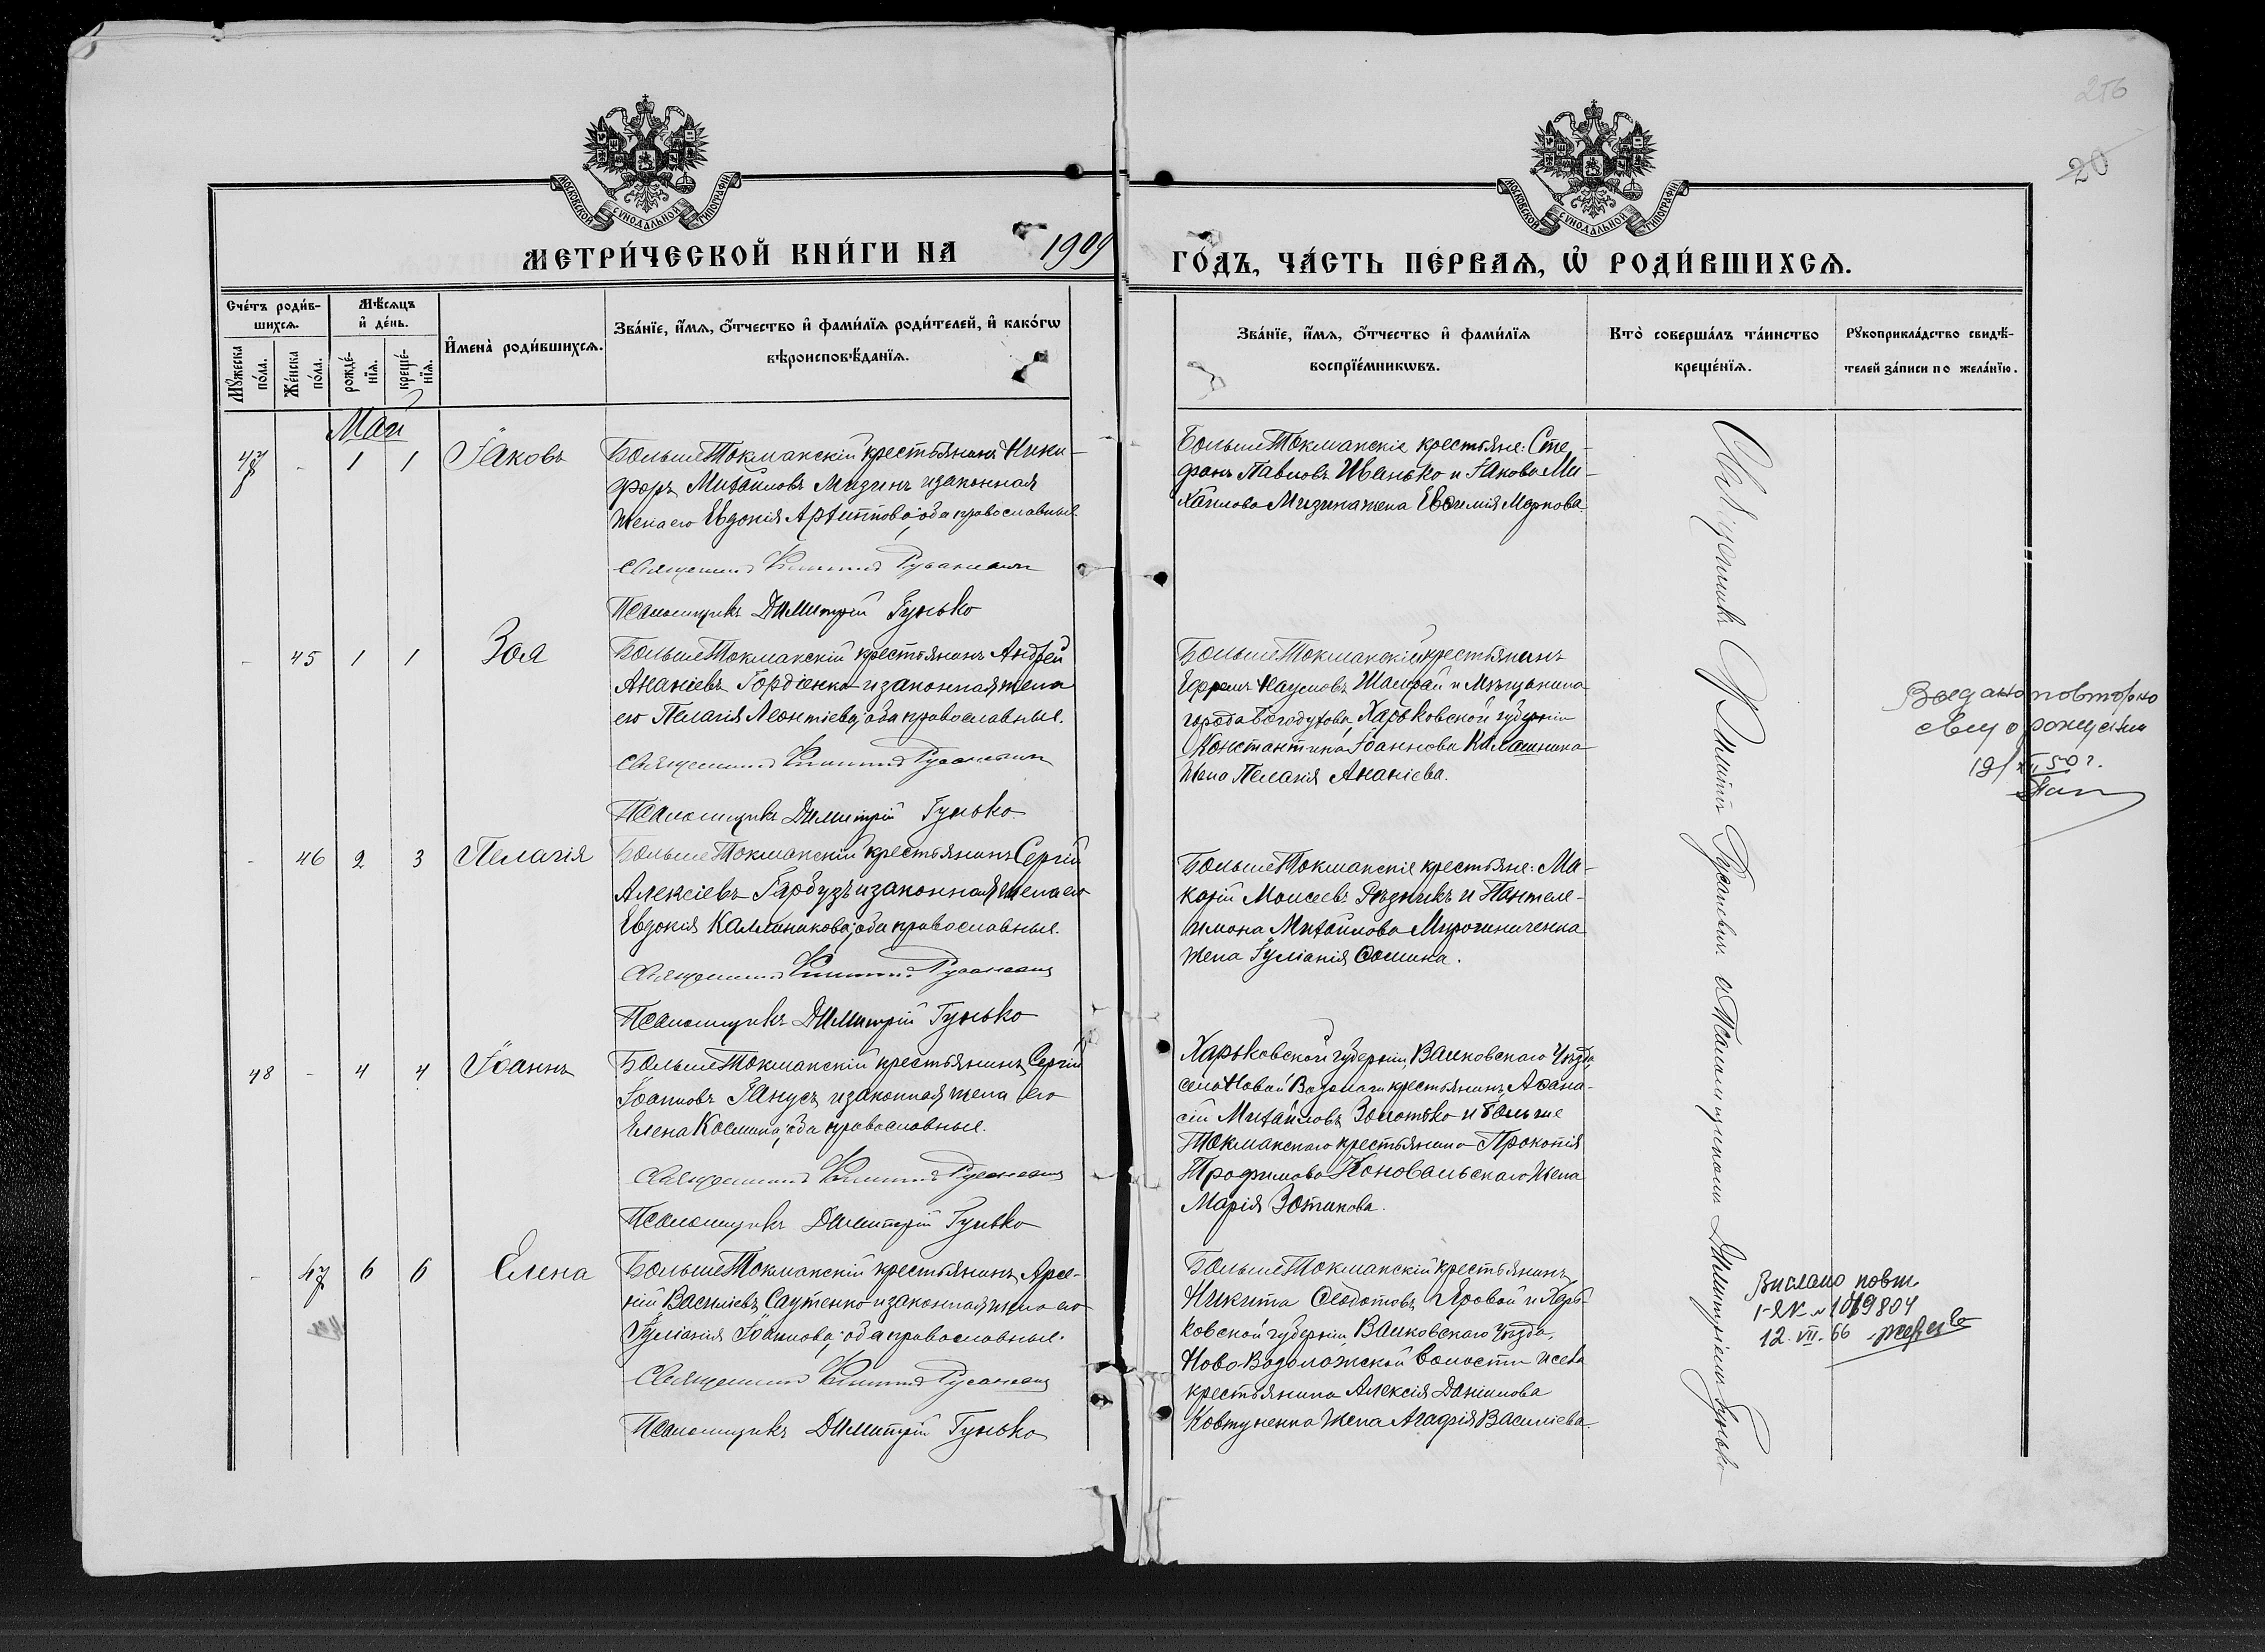 256
20
МОСКОВСКОЙ СѴНОДАЛЬНОЙ ТИПОГРАФІИ
МОСКОВСКОЙ СѴНОДАЛЬНОЙ ТИПОГРАФІИ
МЕТРИ́ЧЕСКОЙ КНИ́ГИ НА 1909 ГО́ДЪ, ЧА́СТЬ ПЕ́РВАѦ, Ѡ РОДИ́ВШИХСѦ.
Сче́тъ роди́в-
шихсѧ.
Мꙋ́жеска по́ла.
Же́нска по́ла.
Мѣ́сѧцъ
и҆ де́нь.
рожде́-
нїѧ.
креще́-
нїѧ.
И҆мена̀ роди́вшихсѧ.
Зва́нїе, и҆́мѧ, ѻ҆́тчество и҆ фами́лїѧ роди́телей, и҆ како́гѡ
вѣроисповѣ́данїѧ.
Зва́нїе, и҆́мѧ, ѻ҆́тчество и҆ фами́лїѧ
воспрїе́мникѡвъ.
Кто̀ соверша́лъ та́инство
креще́нїѧ.
Рꙋкоприкла́дство свидѣ́-
телей за́писи по жела́нїю.
Май
47 - 1 1 Іаковъ
БольшеТокмакскій крестьянинъ Ники-
форъ Михаиловъ Мизинъ и законная
жена его Евдокія Архиппова; оба православные.
Священникъ Русаневич
Псаломщикъ Димитрій Гунько
БольшеТокмакскіе крестьяне: Сте-
фанъ Павловъ Иванько и Іакова Ми-
хаилова Мизина жена Евѳимія Маркова
- 45 1 1 Зоя
БольшеТокмакскій крестьянинъ Андрей
Ананіевъ Гордіенко и законная жена
его Пелагія Леонтіева; оба православные.
Священникъ Русаневич
Псаломщикъ Димитрій Гунько
БольшеТокмакскій крестьянинъ
Ефремъ Наумовъ Шамрай и Мѣщанина
города Богодухова, Харьковской губерніи
Константина Іоаннова Калашника
жена Пелагія Ананіева.
Видано повторно
свид о рождении
19/XII 50 г.
- 46 2 3 Пелагія
БольшеТокмакскій крестьянинъ Сергій
Алексіевъ Гарбузъ и законная жена его
Евдокія Каллиникова; оба православные.
Священникъ Русаневич
Псаломщикъ Димитрій Гунько
БольшеТокмакскіе крестьяне: Ма-
карій Моисеевъ Рѣзникъ и Пантеле-
имона Михаилова Мирошниченка
жена Іуліанія Ѳомина.
48 - 4 4 Іоаннъ
БольшеТокмакскій крестьянинъ Сергій
Іоанновъ Ганусъ и законная жена его
Елена Космина; оба православные.
Священникъ Русаневич
Псаломщикъ Димитрій Гунько
Харьковской губерніи, Валковскаго уѣзда,
села Новой Водолаги крестьянинъ Аѳана-
сій Михаиловъ Золотько и Больше
Токмакскаго крестьянина Прокопія
Трофимова Коновальскаго жена
Марія Зотикова.
- 47 6 6 Елена
БольшеТокмакскій крестьянинъ Арсе-
ній Василіевъ Саутенко и законная жена его
Іуліанія Іоаннова; оба православные.
Священникъ Русаневич
Псаломщикъ Димитрій Гунько
БольшеТокмакскій крестьянинъ
Никита Ѳеодотовъ Яровой и Харь-
ковской губерніи Валковскаго уѣзда,
Ново Водолажской волости и села
крестьянина Алексія Даніилова
Ковтуненка жена Агафія Василіева
Священникъ Русаневич с Псаломщикомъ Димитріемъ Гунько
Вислано повт.
I-ЯК № 1019804
12. VII. 66